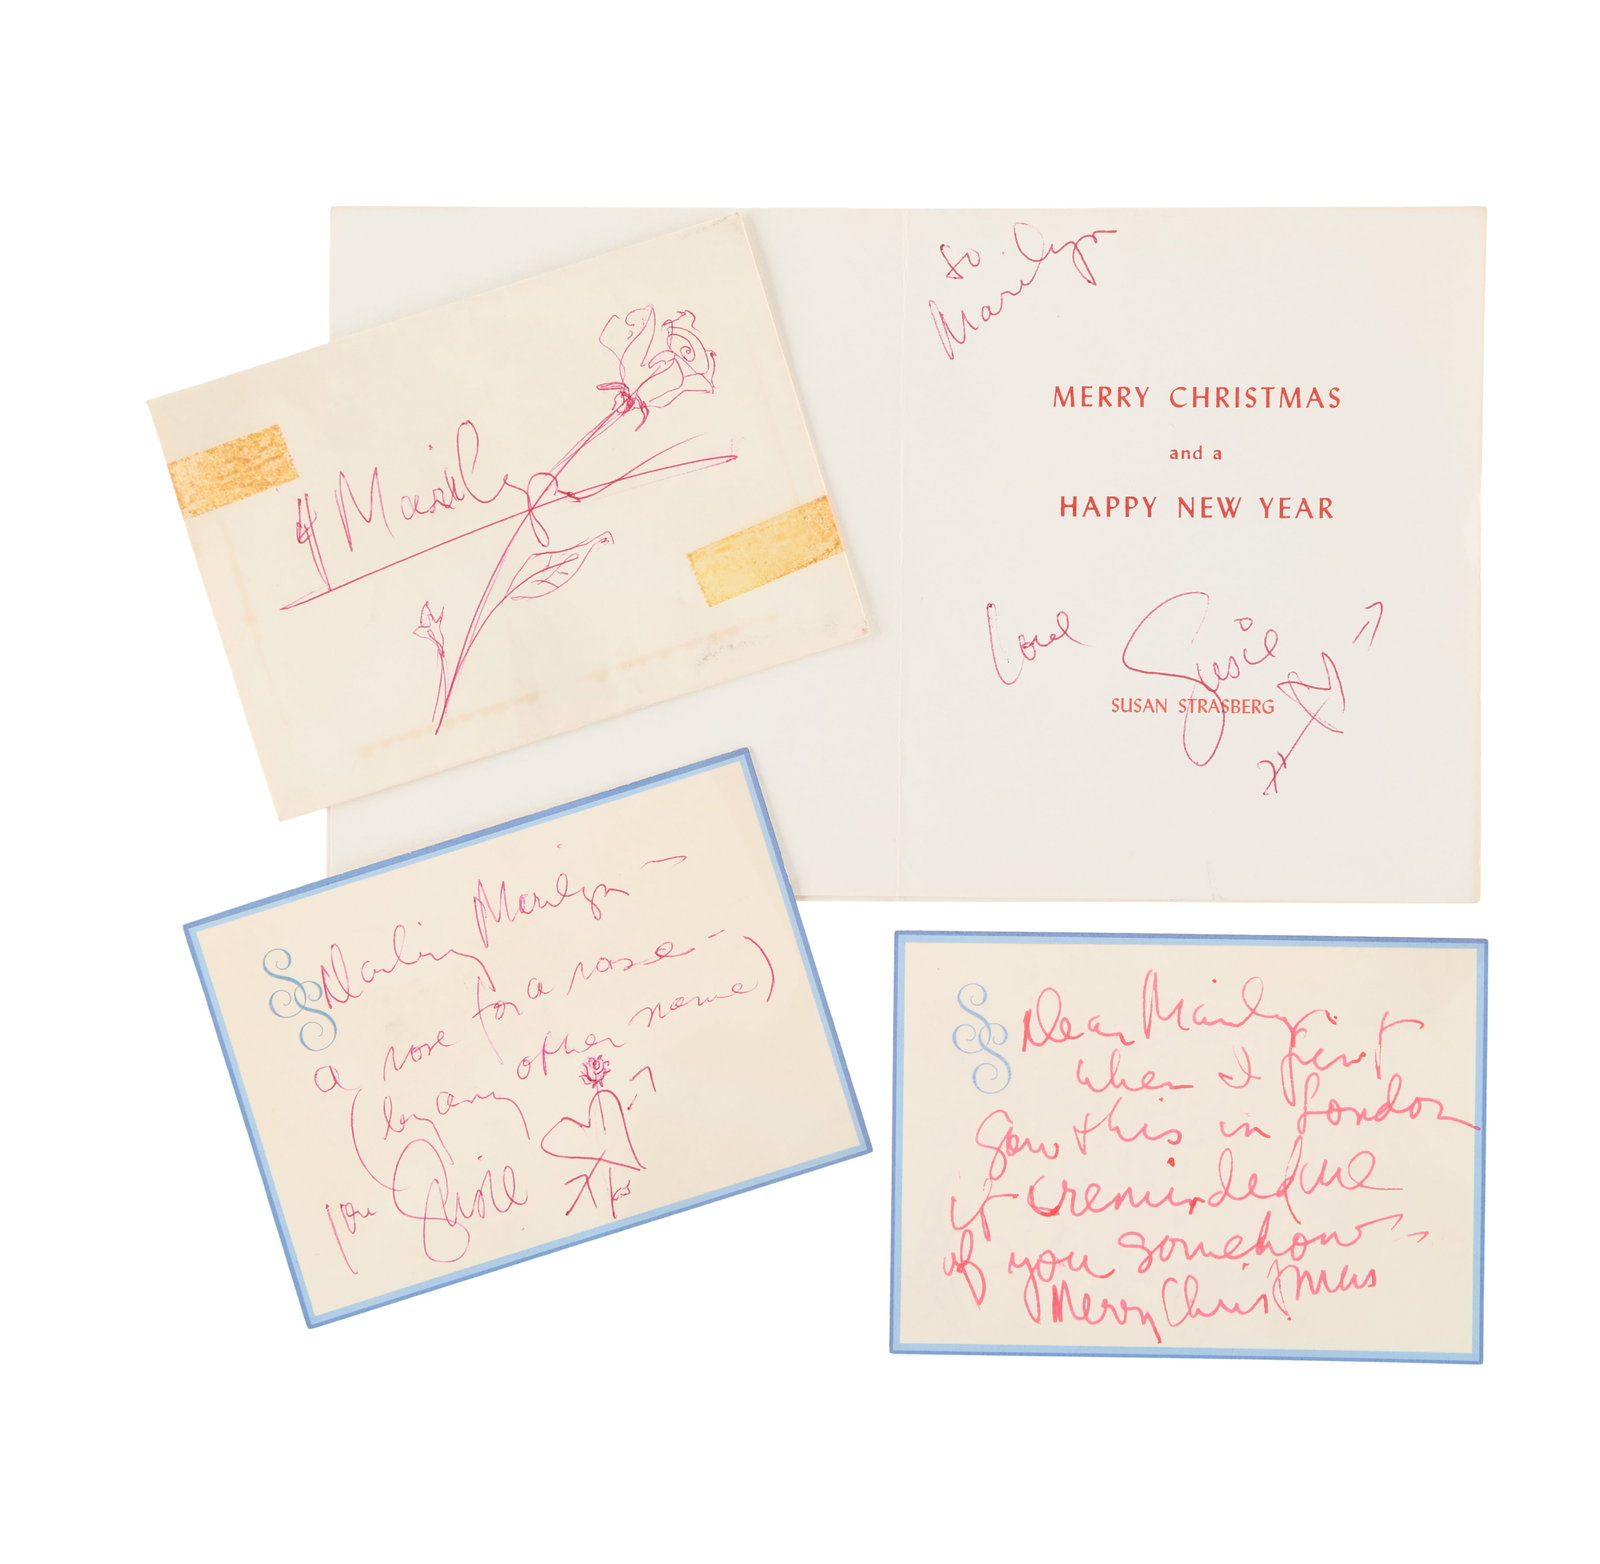 Marilyn
to
Marilyn
MERRY CHRISTMAS
and a
HAPPY NEW YEAR
Love Susie
SUSAN STRASBERG
SS
Darling Marilyn –
a rose for a rose –
(by any other name)
you Susie
SS
Dear Marilyn
when I first
saw this in London
it reminded me
of you somehow –
Merry Christmas